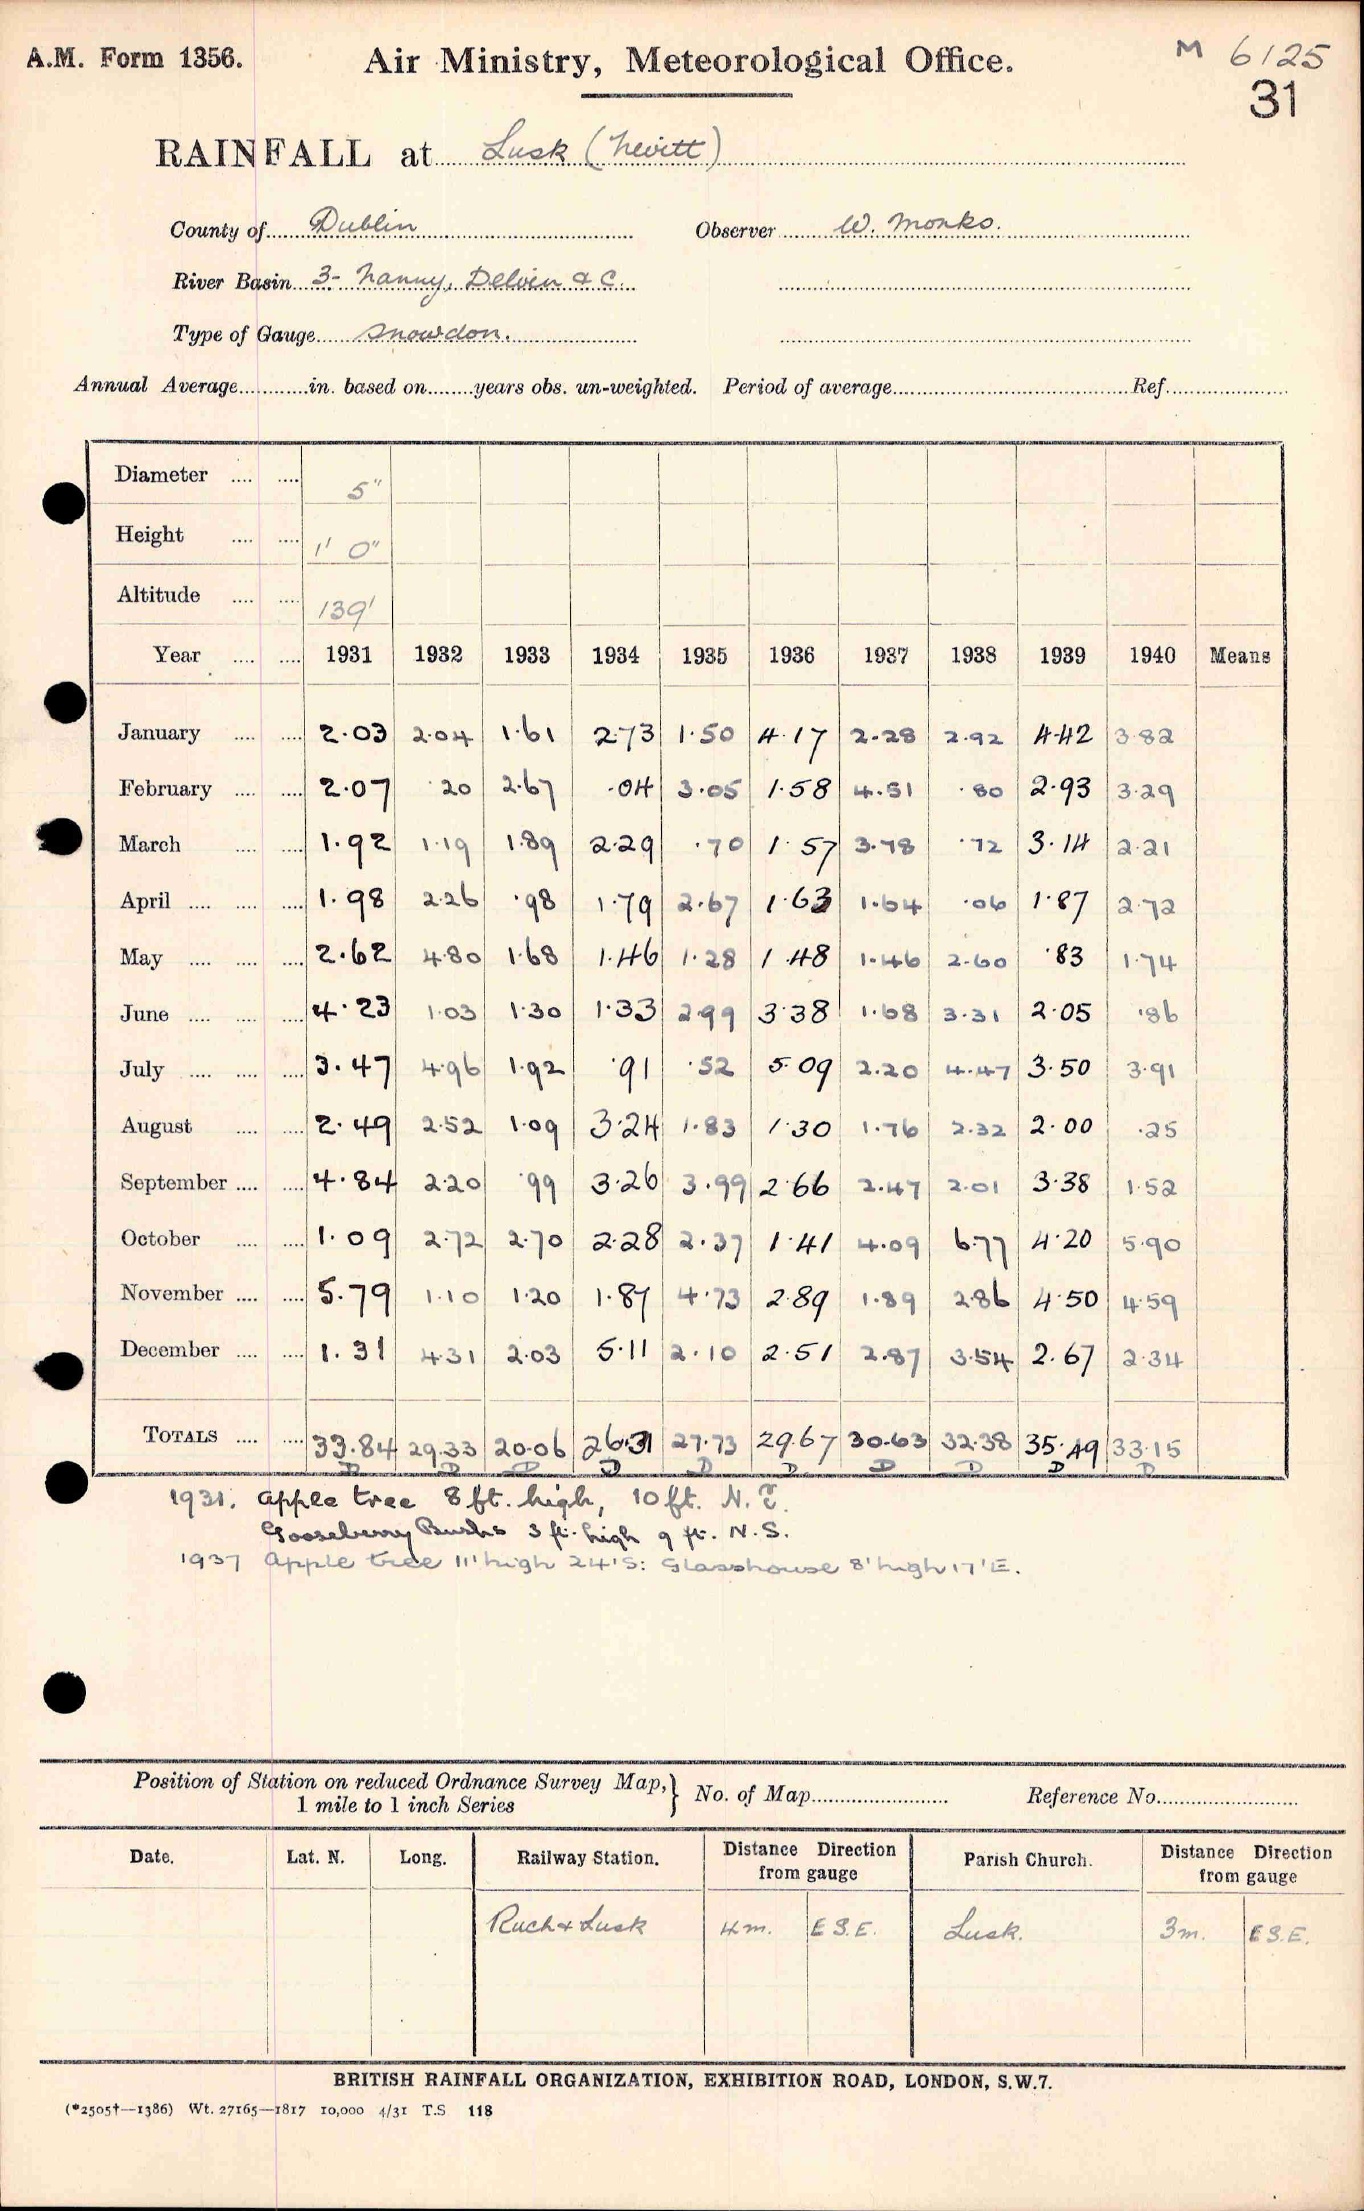 A.M. Form 1356. Air Ministry, Meteorological Office. M 6125
31
RAINFALL at Lusk (Nevitt)
County of Dublin Observer W. Monks.
River Basin 3- Nanny, Delvin & C.
Type of Gauge Snowdon.
Annual Average in. based on years obs. un-weighted. Period of average Ref.
Diameter 5"
Height 1' 0"
Altitude 139'
Year 1931 1932 1933 1934 1935 1936 1937 1938 1939 1940 Means
January 2.03 2.04 1.61 2.73 1.50 4.17 2.28 2.92 4.42 3.82
February 2.07 .20 2.67 .04 3.05 1.58 4.51 .80 2.93 3.29
March 1.92 1.19 1.89 2.29 .70 1.57 3.78 .72 3.14 2.21
April 1.98 2.26 .98 1.79 2.67 1.63 1.64 .06 1.87 2.72
May 2.62 4.80 1.68 1.46 1.28 1.48 1.46 2.60 .83 1.74
June 4.23 1.03 1.30 1.33 2.99 3.38 1.68 3.31 2.05 .86
July 3.47 4.96 1.92 .91 .52 5.09 2.20 4.47 3.50 3.91
August 2.49 2.52 1.09 3.24 1.83 1.30 1.76 2.32 2.00 .25
September 4.84 2.20 .99 3.26 3.99 2.66 2.47 2.01 3.38 1.52
October 1.09 2.72 2.70 2.28 2.37 1.41 4.09 6.77 4.20 5.90
November 5.79 1.10 1.20 1.87 4.73 2.89 1.89 2.86 4.50 4.59
December 1.31 4.31 2.03 5.11 2.10 2.51 2.87 3.54 2.67 2.34
TOTALS 33.84 29.33 20.06 26.31 27.73 29.67 30.63 32.38 35.49 33.15
D D D D D D D D D D
1931. Apple tree 8 ft. high, 10 ft. N.E.
Gooseberry Bushes 3 ft. high 9 ft. N.S.
1937 Apple tree 11' high 24' S: Glasshouse 8' high 17' E.
Position of Station on reduced Ordnance Survey Map, } No. of Map Reference No.
1 mile to 1 inch Series
Date. Lat. N. Long. Railway Station. Distance Direction from gauge Parish Church. Distance Direction from gauge
Rush & Lusk 4 m. E S.E. Lusk. 3 m. E S.E.
BRITISH RAINFALL ORGANIZATION, EXHIBITION ROAD, LONDON, S.W.7.
(*2505†—1386) Wt. 27165—1817 10,000 4/31 T.S 118